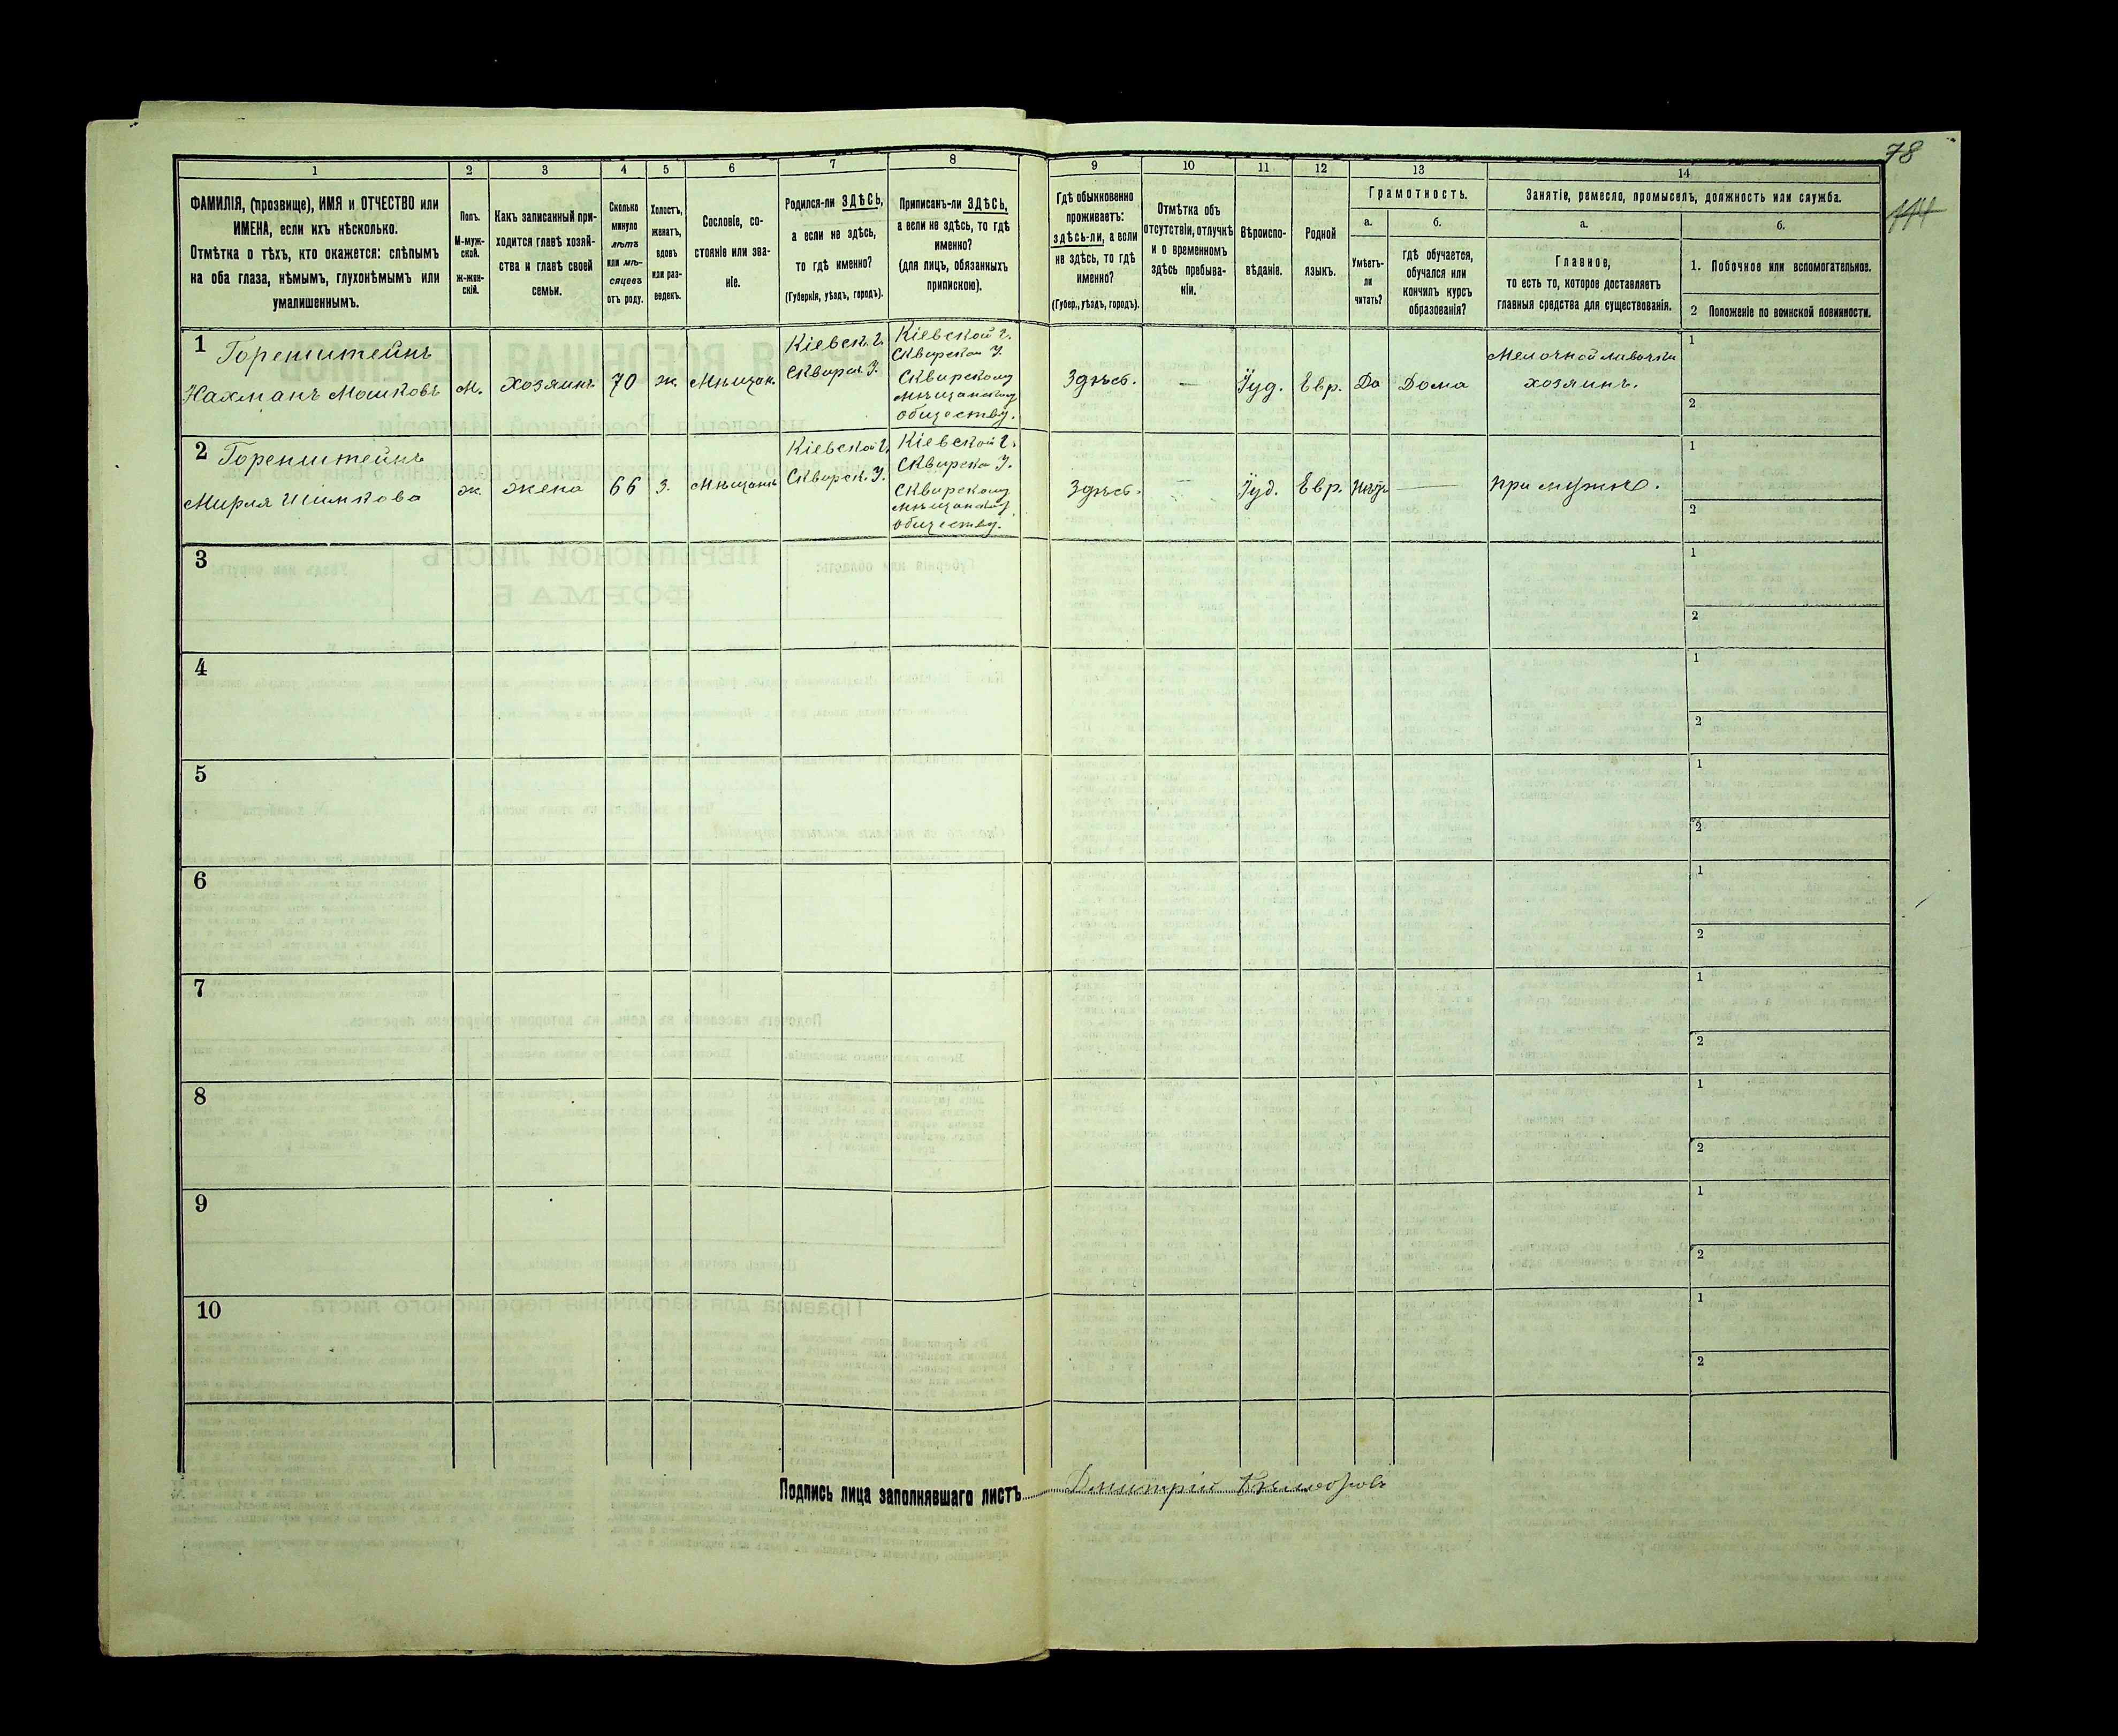 78
1
2
3
4
5
6
7
8
9
10
11
12
13
14
ФАМИЛІЯ, (прозвище), ИМЯ и ОТЧЕСТВО или
ИМЕНА, если ихъ нѣсколько.
Отмѣтка о тѣхъ, кто окажется: слѣпымъ
на оба глаза, нѣмымъ, глухонѣмымъ или
умалишеннымъ.
Полъ.
М-муж-
ской.
ж-жен-
скій.
Какъ записанный при-
ходится главѣ хозяй-
ства и главѣ своей
семьи.
Сколько
минуло
лѣтъ
или мѣ-
сяцевъ
отъ роду.
Холостъ,
женатъ,
вдовъ
или раз-
веденъ.
Сословіе, со-
стояніе или зва-
ніе.
Родился-ли ЗДѢСЬ,
а если не здѣсь,
то гдѣ именно?
(Губернія, уѣздъ, городъ).
Приписанъ-ли ЗДѢСЬ,
а если не здѣсь, то гдѣ
именно?
(для лицъ, обязанныхъ
припискою).
Гдѣ обыкновенно
проживаетъ:
здѣсь-ли, а если
не здѣсь, то гдѣ
именно?
(Губер., уѣздъ, городъ).
Отмѣтка объ
отсутствіи, отлучкѣ
и о временномъ
здѣсь пребыва-
ніи.
Вѣроиспо-
вѣданіе.
Родной
языкъ.
Грамотность.
а.
Умѣетъ-
ли
читать?
б.
гдѣ обучается,
обучался или
кончилъ курсъ
образованія?
Занятіе, ремесло, промыселъ, должность или служба.
а.
Главное,
то есть то, которое доставляетъ
главныя средства для существованія.
б.
1. Побочное или вспомогательное.
2 Положеніе по воинской повинности.
1
Горенштейнъ
Нахманъ Мошковъ
м.
хозяинъ
70
ж.
Мѣщан.
Кіевск. г.
Сквирск. У.
Кіевской г.
Сквирскои У.
Сквирскому
мѣщанскому
обществу.
Здѣсь.
—
Іуд.
Евр.
Да
Дома
Мелочной лавочки
хозяинъ.
1
2
2
Горенштейнъ
Мирля Шимкова
ж.
жена
66
з.
Мѣщанк.
Кіевской г.
Сквирск. У.
Кіевской г.
Сквирско У.
Сквирскому
мѣщанском.
обществу.
Здѣсь.
—
Іуд.
Евр.
Нѣтъ
—
При мужѣ.
1
2
3
1
2
4
1
2
5
1
2
6
1
2
7
1
2
8
1
2
9
1
2
10
1
2
Подпись лица заполнявшаго листъ
Дмитрій